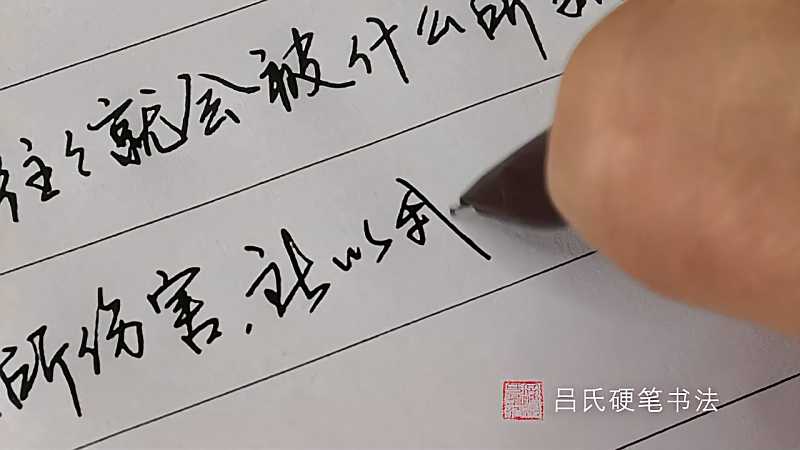 往々就会被什么所
所伤害,所以我
吕氏硬笔书法